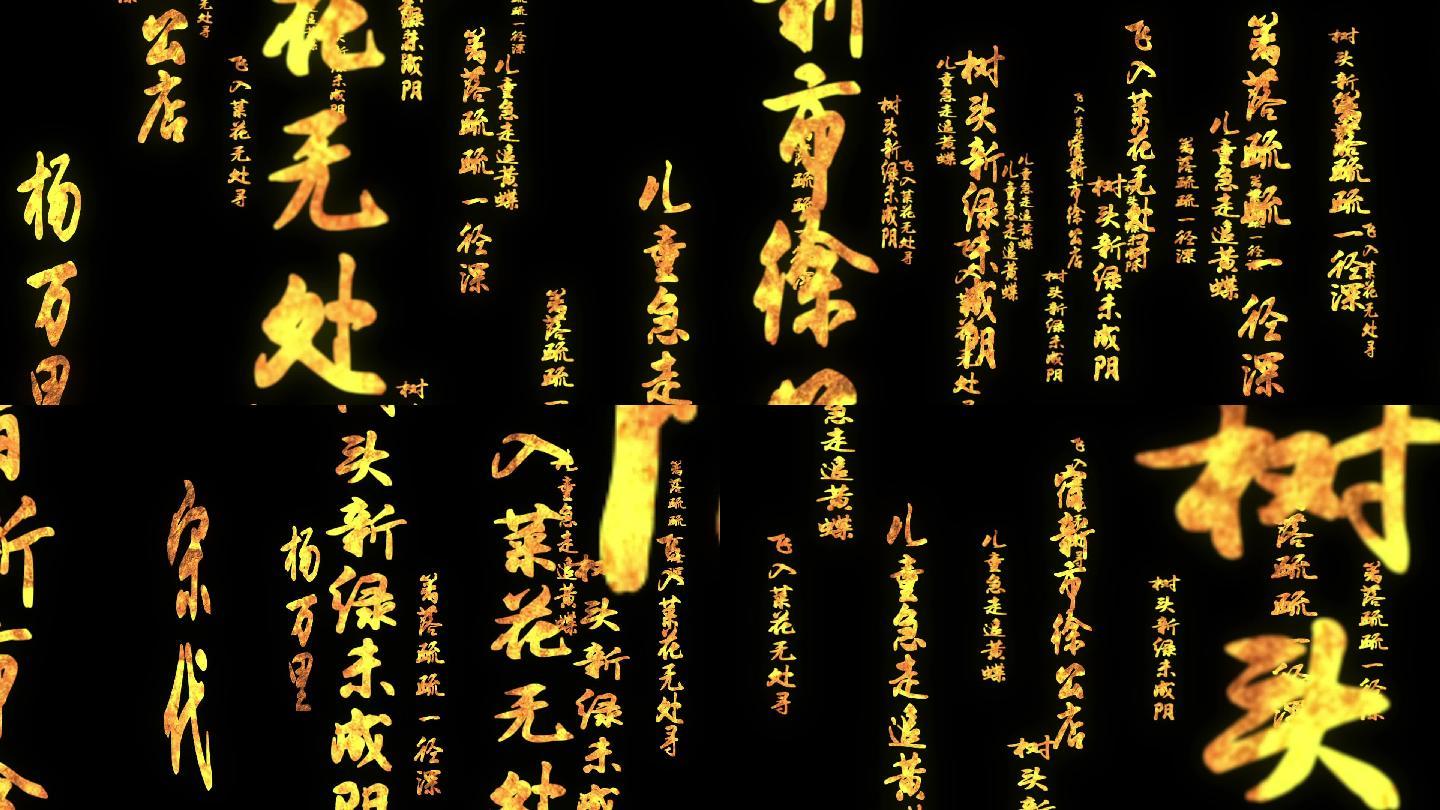 杨万里
公店
飞入菜花无处寻
花无处
新绿未成阴
篱落疏疏一径深
儿童急走追黄蝶
篱落疏疏一
儿童急走
树
新市徐
树头新绿未成阴
飞入菜花无处寻
儿童急走追黄蝶
树头新绿未成阴
儿童急走追黄蝶
儿童急走追黄蝶
树头新绿未成阴
宿新市徐公店
树头新绿未成阴
飞入菜花无处寻
篱落疏疏一径深
儿童急走追黄蝶
篱落疏疏一径深
树头新
疏疏一径深
飞入菜花无处寻
宋代
杨万里
头新绿未成阴
篱落疏疏一径深
入菜花无处
儿童急走追黄蝶
树头新绿未成
篱落疏疏
飞入菜花无处寻
飞入菜花无处寻
急走追黄蝶
儿童急走追黄
儿童急走追黄蝶
宿新市徐公店
树头新
树头新绿未成阴
树头
落疏疏一径深
篱落疏疏一径深